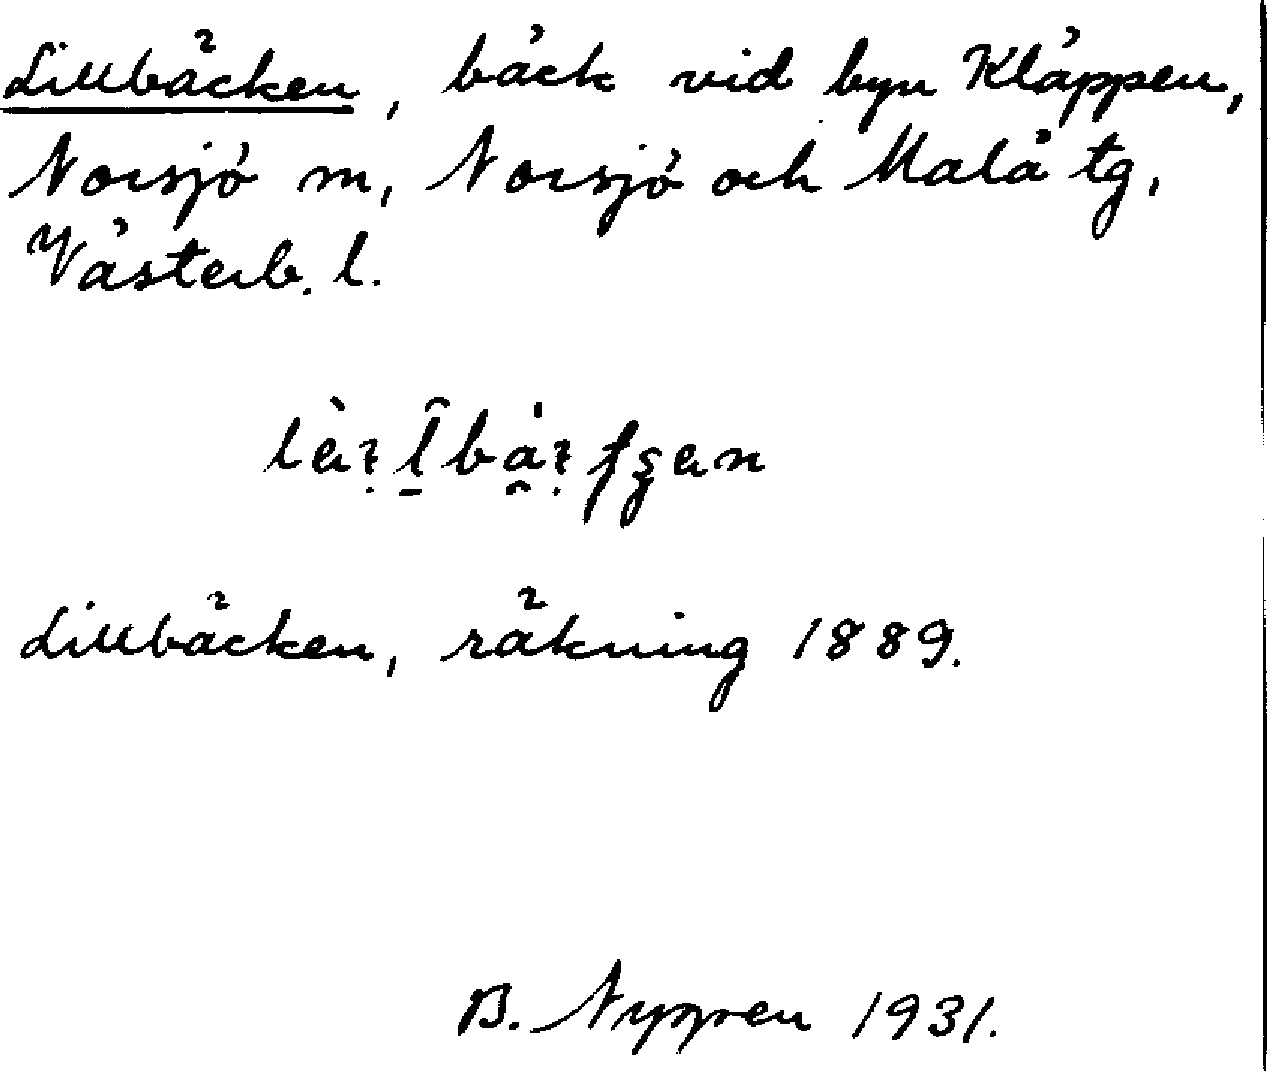 Lillbäcken, bäck vid byn Kläppen,
Norsjö m, Norsjö och Malå tg,
Västerb. l.
Lillbäcken, räkning 1889.
B. Nygren 1931.